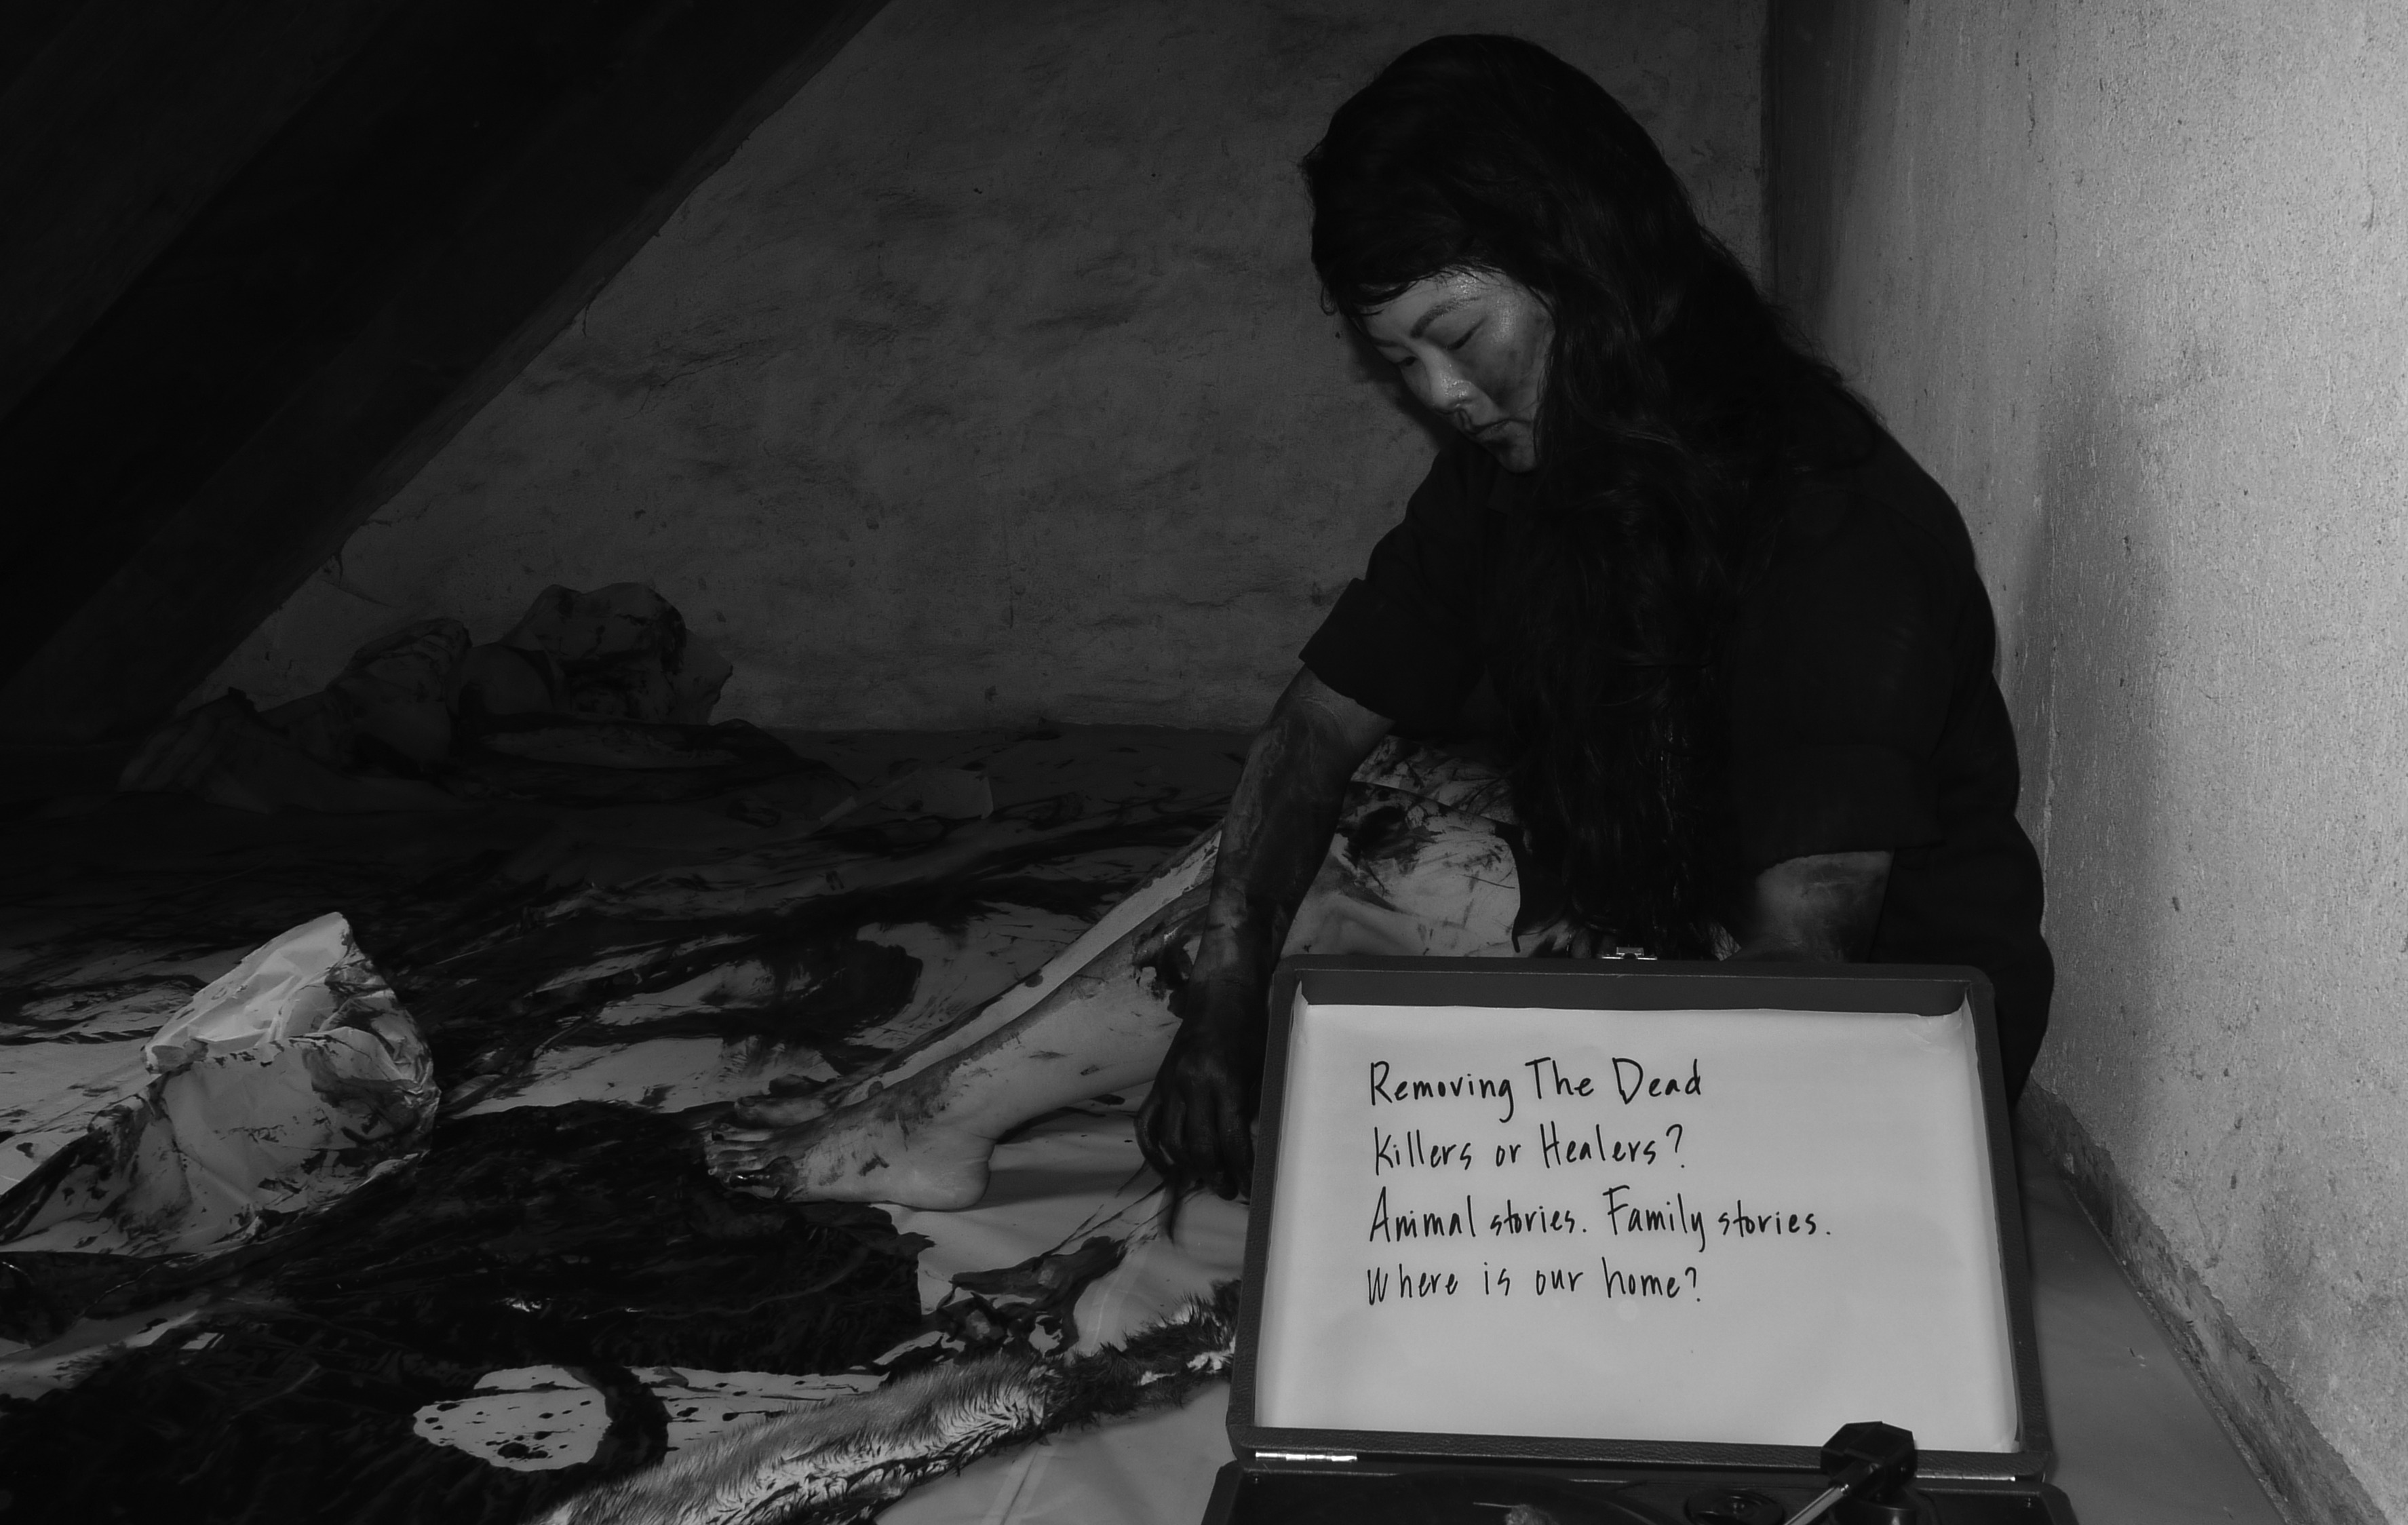 Removing The Dead
Killers or Healers?
Animal stories. Family stories.
Where is our home?